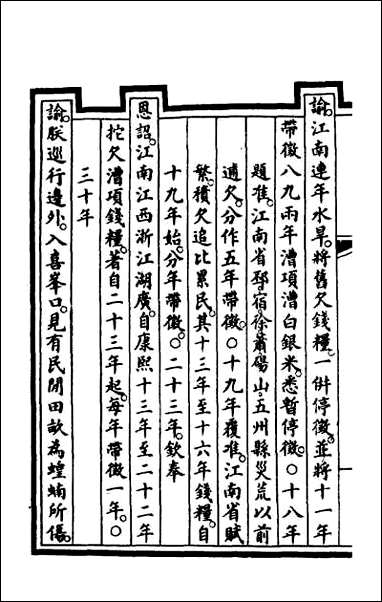 諭。江南連年水旱。將舊欠錢糧。一併停徵。並將十一年
帶徵八九兩年漕項漕白銀米。悉暫停徵。○十八年
題准。江南省邳宿徐蕭碭山五州縣災荒以前
逋欠。分作五年帶徵。○十九年覆准。江南省賦
繁。積欠追比累民。其十三年至十六年錢糧。自
十九年始。分年帶徵。○二十三年。欽奉
恩詔。江南江西浙江湖廣。自康熙十三年至二十二年
挓欠漕項錢糧。著自二十三年起。每年帶徵一年。○
三十年
諭。朕巡行邊外。入喜峯口。見有民間田畝為蝗蝻所傷。